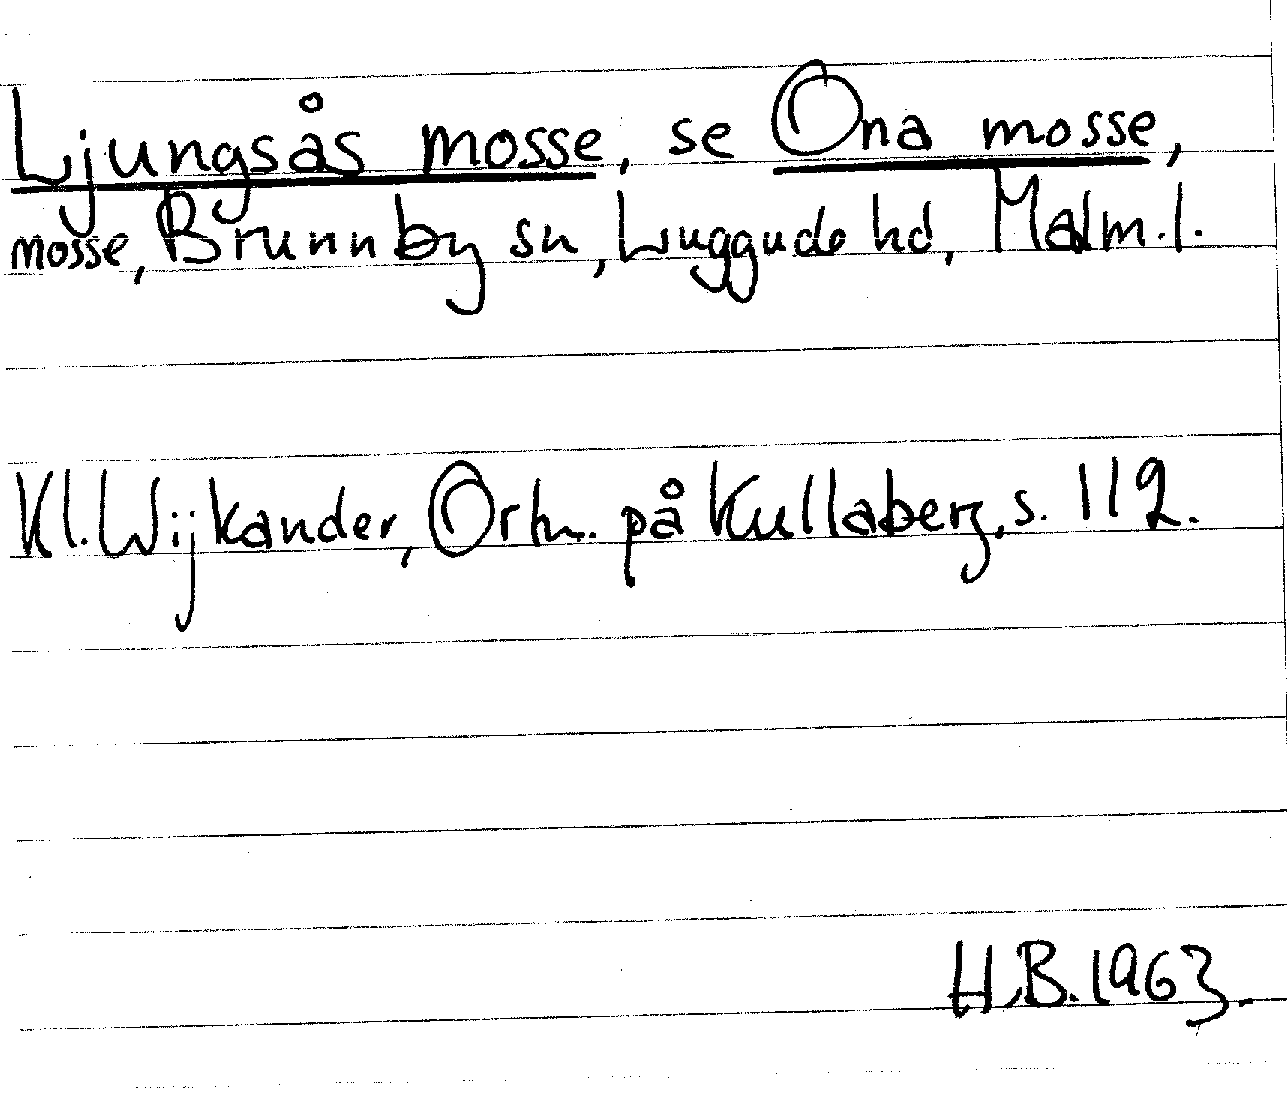 Ljungsås mosse, se Ona mosse,
mosse, Brunnby sn, Luggude hd, Malm.l.
Kl. Wijkander, Ortn. på Kullaberg, s. 112.
H.B. 1963.